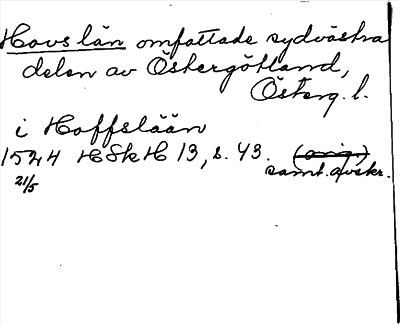 Hovs län omfattade sydvästra
delen av Östergötland,
Österg. l.
i Hoffslään
1524 HSkH 13, s. 43. (orig.)
21/5 samt. avskr.